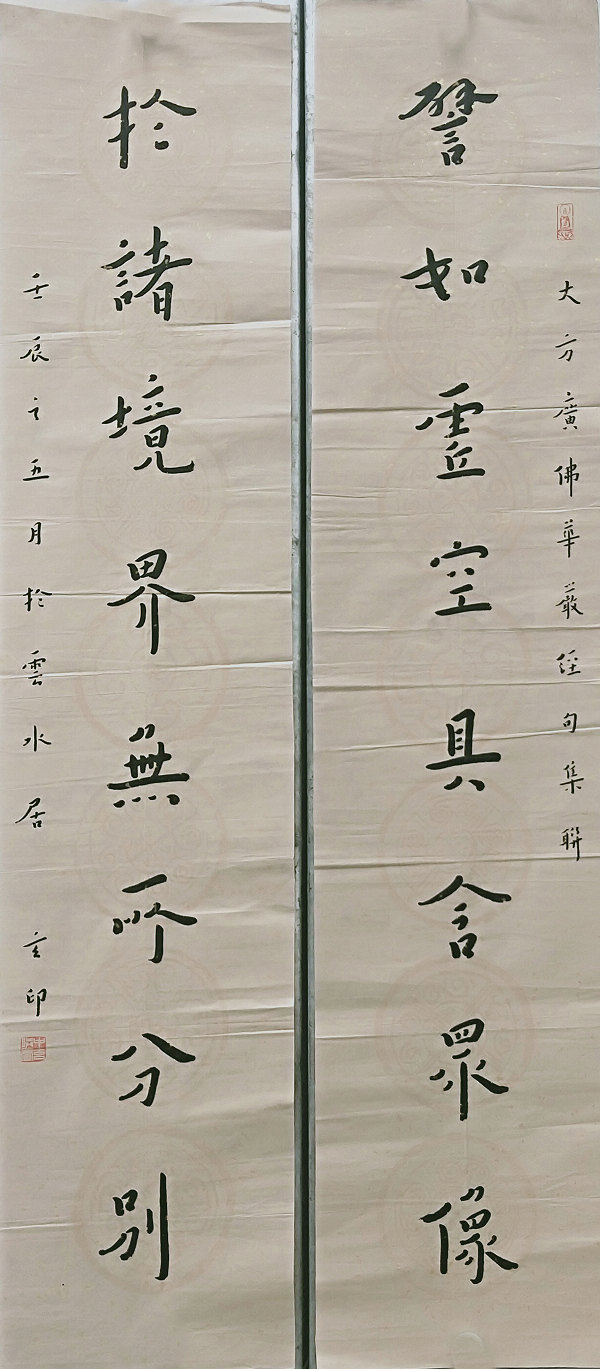 大方廣佛華嚴經句集聯
譬如虛空具含眾像
於諸境界無所分別
壬辰之五月於雲水居 玄印